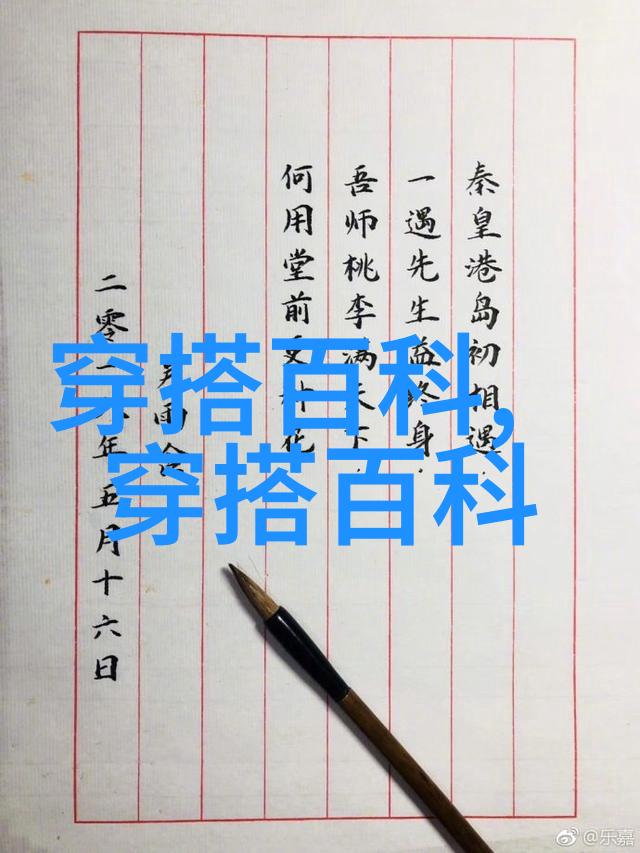 秦皇港岛初相遇，
一遇先生益终身，
吾师桃李满天下，
何用堂前更种花
雨
二零一年五月十六日
穿搭百科,
穿搭百科
@乐嘉